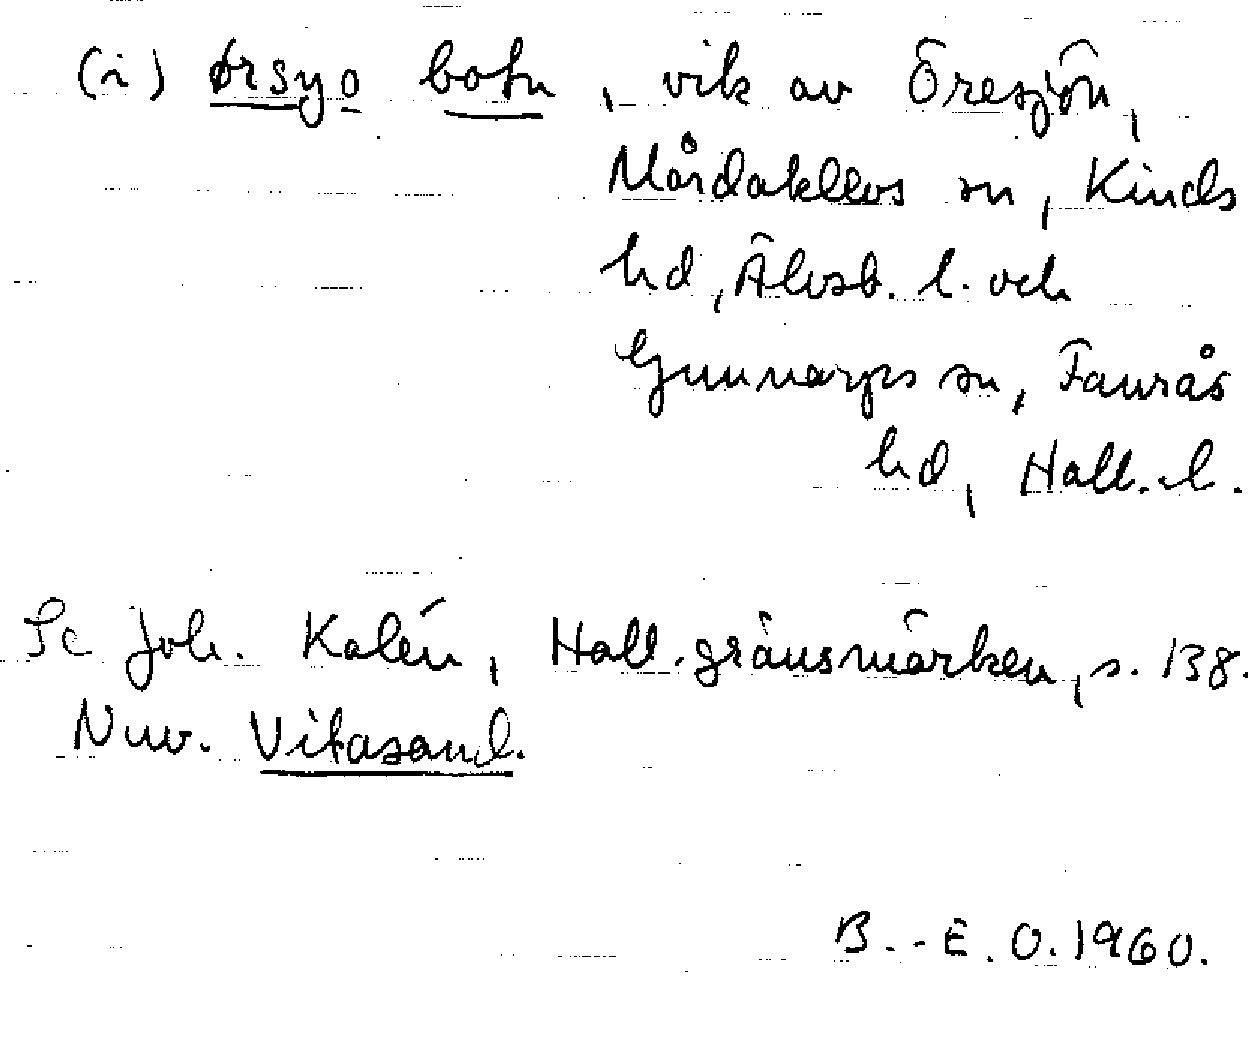 (i) ørsyo botn, vik av Öresjön,
Mårdaklevs sn, Kinds
hd, Älvsb. l. och
Gunnarps sn, Faurås
hd, Hall. l.
Se Joh. Kalén, Hall. gränsmärken, s. 138.
Nuv. Vitasand.
B.-E. O. 1960.